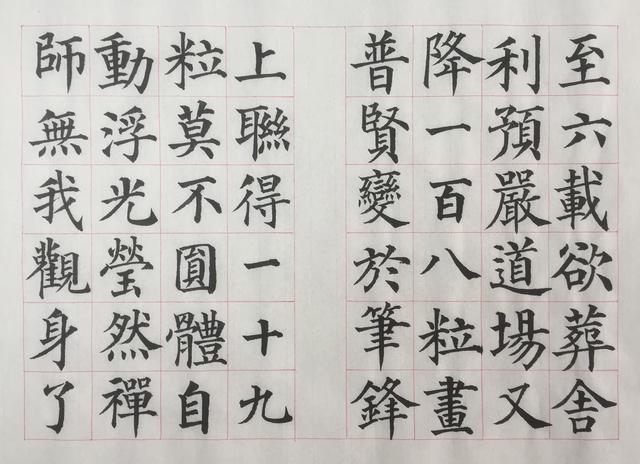 至六載欲葬舍
利預嚴道場又
降一百八粒畫
普賢變於筆鋒
上聯得一十九
粒莫不圓體自
動浮光瑩然禪
師無我觀身了